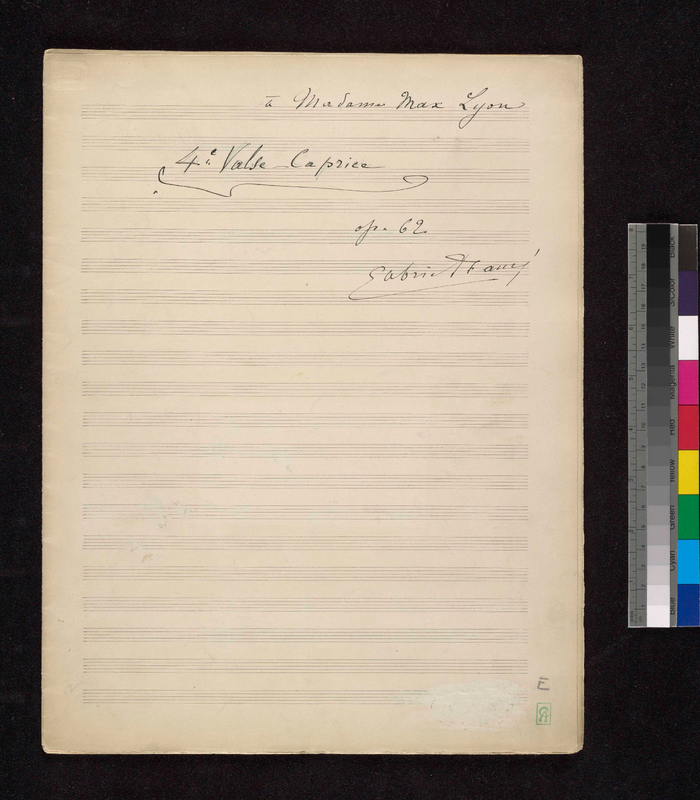 à Madame Max Lyon
4e Valse-Caprice
op. 62
Gabriel Fauré
E
Black
3/Color
White
Magenta
Red
Yellow
Green
Cyan
Blue